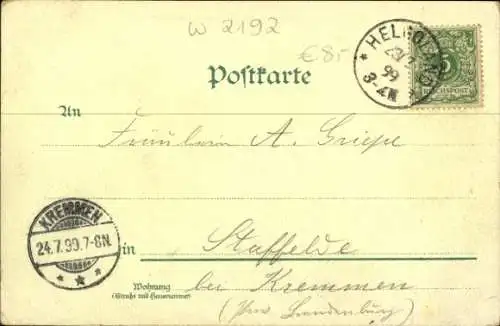 W 2192
€8,-
* HELGOLAND *
23/7
99
3-4N
5
REICHSPOST
Postkarte
An
Fräulein A. Griepe
KREMMEN
24.7.99.7-8N.
in Staffelde
Wohnung bei Kremmen
(Straße und Hausnummer)
(Prov. Brandenburg)